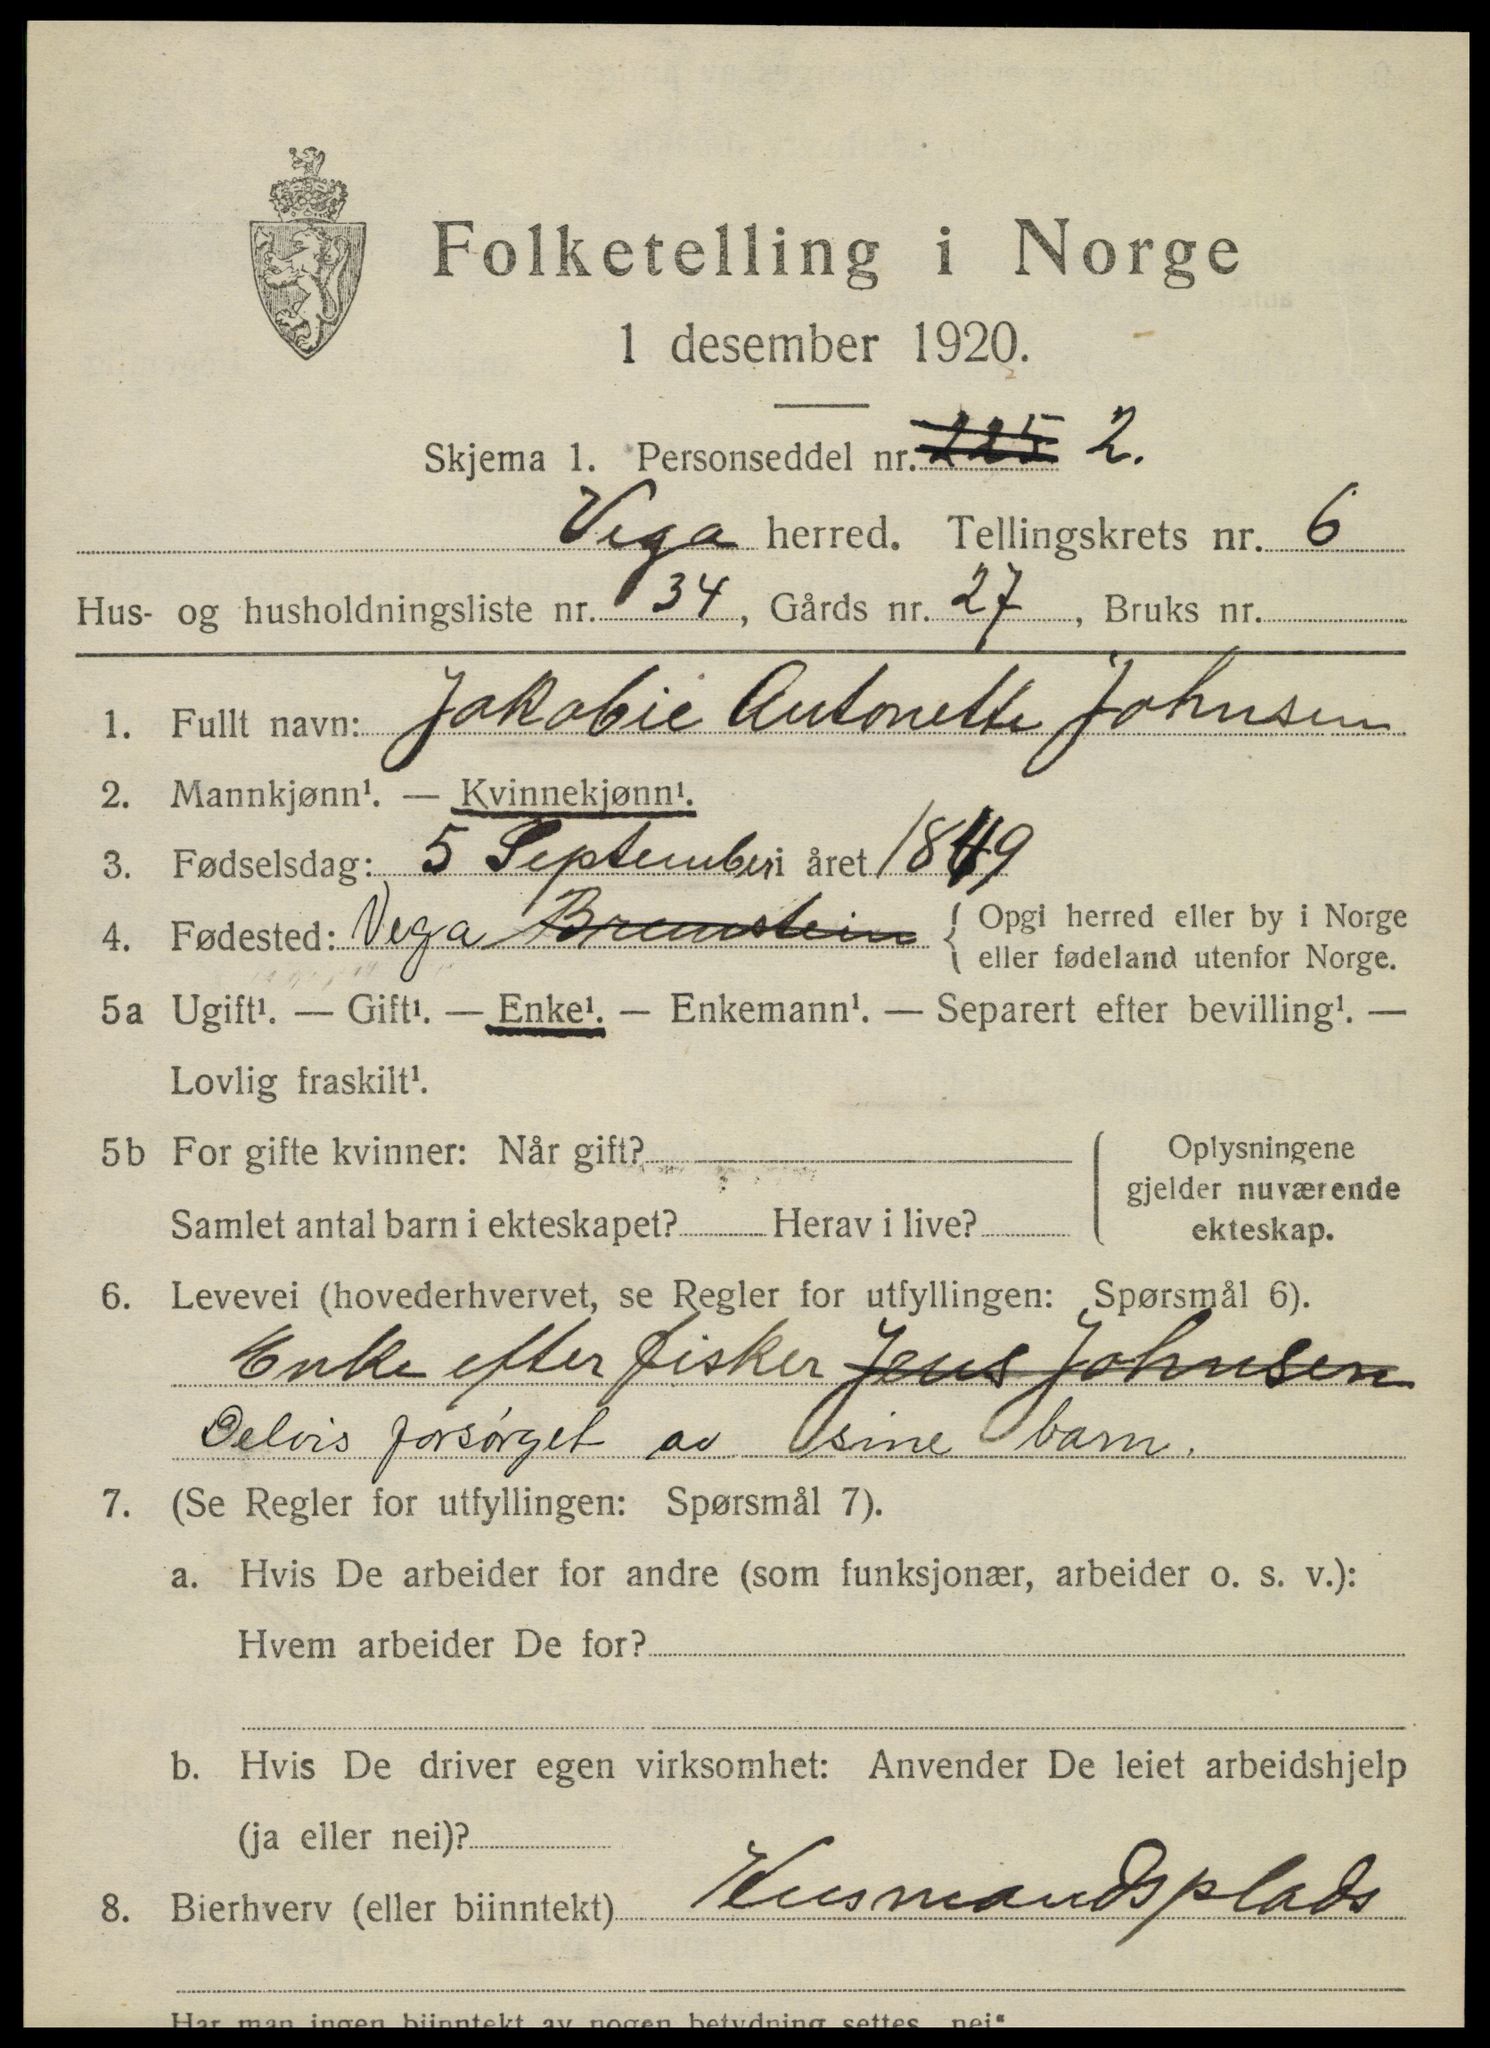 Folketelling i Norge
1 desember 1920.
Skjema 1. Personseddel nr. 225 2.
Vega herred. Tellingskrets nr. 6
Hus- og husholdningsliste nr. 34, Gårds nr. 27, Bruks nr.
1. Fullt navn: Jakobie Antonette Johnsen
2. Mannkjønn¹. — Kvinnekjønn¹.
3. Fødselsdag: 5 September i året 1849
4. Fødested: Vega Bremstein { Opgi herred eller by i Norge
eller fødeland utenfor Norge.
5a Ugift¹. — Gift¹. — Enke¹. — Enkemann¹. — Separert efter bevilling¹. —
Lovlig fraskilt¹.
5b For gifte kvinner: Når gift?
Samlet antal barn i ekteskapet? Herav i live?
Oplysningene
gjelder nuværende
ekteskap.
6. Levevei (hovederhvervet, se Regler for utfyllingen: Spørsmål 6).
Enke efter fisker Jens Johnsen
Delvis forsørget av sine barn.
7. (Se Regler for utfyllingen: Spørsmål 7).
a. Hvis De arbeider for andre (som funksjonær, arbeider o. s. v.):
Hvem arbeider De for?
b. Hvis De driver egen virksomhet: Anvender De leiet arbeidshjelp
(ja eller nei)?
8. Bierhverv (eller biinntekt) Husmandsplads
Har man ingen biinntekt av nogen betydning settes „nei“